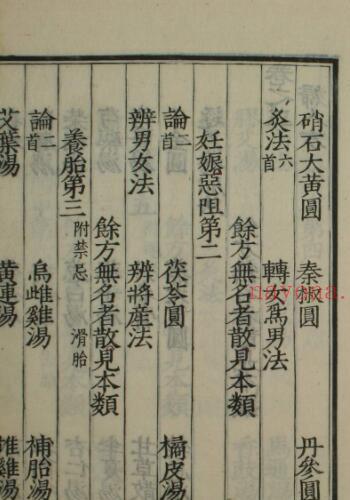 硝石大黃圓 秦椒圓 丹參圓
灸法六首 轉女爲男法
餘方無名者散見本類
妊娠惡阻第二
論二首 茯苓圓 橘皮湯
辨男女法 辨將産法
餘方無名者散見本類
養胎第三 附禁忌 滑胎
論二首 烏雌雞湯 補胎湯
艾葉湯 黃連湯 雞湯